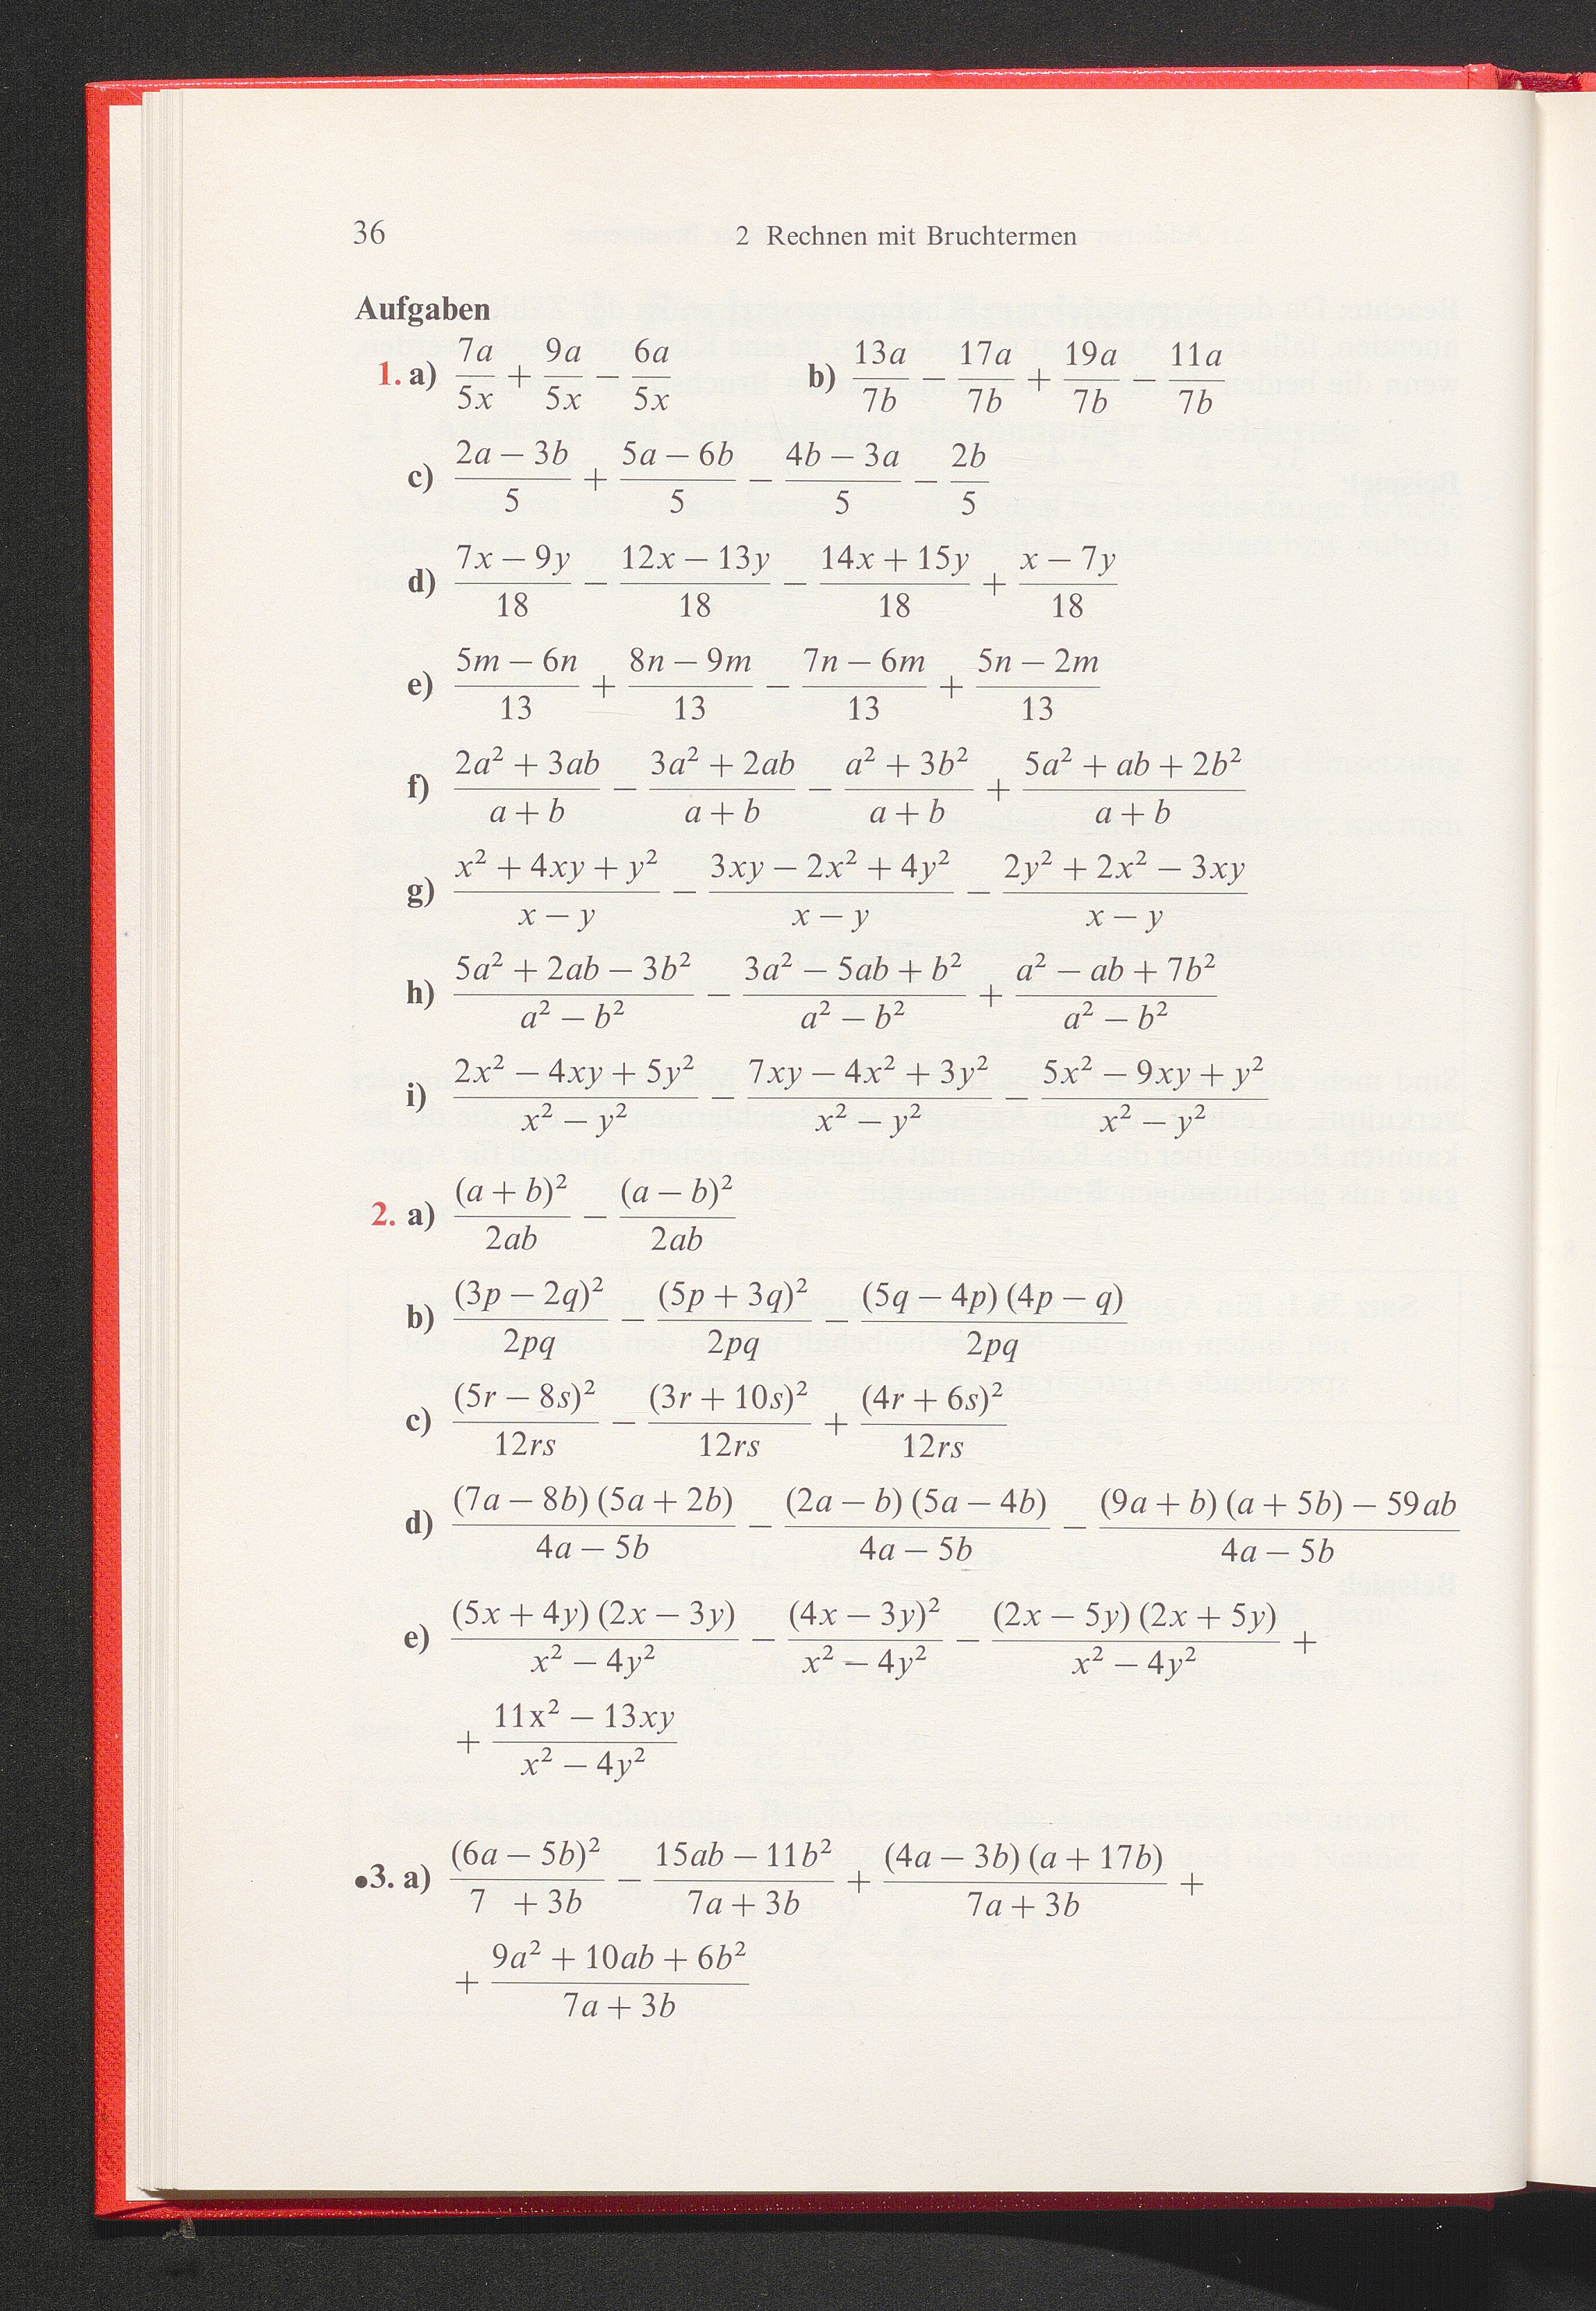 36 2 Rechnen mit Bruchtermen
Aufgaben
1. a) 7a/5x + 9a/5x − 6a/5x b) 13a/7b − 17a/7b + 19a/7b − 11a/7b
c) (2a − 3b)/5 + (5a − 6b)/5 − (4b − 3a)/5 − 2b/5
d) (7x − 9y)/18 − (12x − 13y)/18 − (14x + 15y)/18 + (x − 7y)/18
e) (5m − 6n)/13 + (8n − 9m)/13 − (7n − 6m)/13 + (5n − 2m)/13
f) (2a² + 3ab)/(a + b) − (3a² + 2ab)/(a + b) − (a² + 3b²)/(a + b) + (5a² + ab + 2b²)/(a + b)
g) (x² + 4xy + y²)/(x − y) − (3xy − 2x² + 4y²)/(x − y) − (2y² + 2x² − 3xy)/(x − y)
h) (5a² + 2ab − 3b²)/(a² − b²) − (3a² − 5ab + b²)/(a² − b²) + (a² − ab + 7b²)/(a² − b²)
i) (2x² − 4xy + 5y²)/(x² − y²) − (7xy − 4x² + 3y²)/(x² − y²) − (5x² − 9xy + y²)/(x² − y²)
2. a) (a + b)²/2ab − (a − b)²/2ab
b) (3p − 2q)²/2pq − (5p + 3q)²/2pq − (5q − 4p)(4p − q)/2pq
c) (5r − 8s)²/12rs − (3r + 10s)²/12rs + (4r + 6s)²/12rs
d) (7a − 8b)(5a + 2b)/(4a − 5b) − (2a − b)(5a − 4b)/(4a − 5b) − ((9a + b)(a + 5b) − 59ab)/(4a − 5b)
e) (5x + 4y)(2x − 3y)/(x² − 4y²) − (4x − 3y)²/(x² − 4y²) − (2x − 5y)(2x + 5y)/(x² − 4y²) +
+ (11x² − 13xy)/(x² − 4y²)
•3. a) (6a − 5b)²/(7 + 3b) − (15ab − 11b²)/(7a + 3b) + (4a − 3b)(a + 17b)/(7a + 3b) +
+ (9a² + 10ab + 6b²)/(7a + 3b)